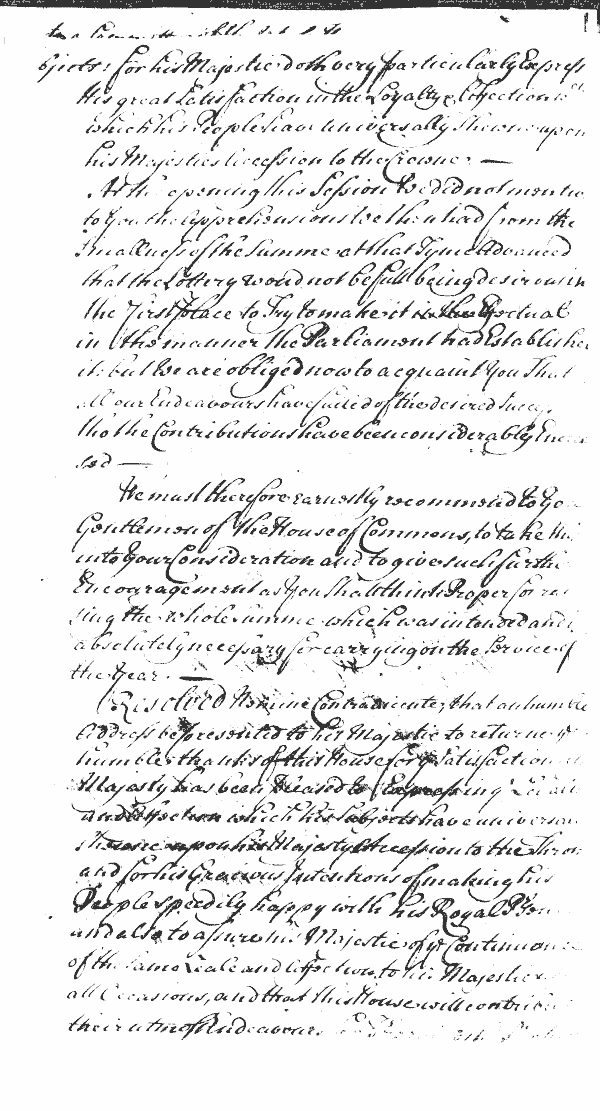 bjects: for his Majestie doth very particularly Express
His great Satisfaction in the Loyalty & Affection wch
which his People have universally shewne upon
his Majesties Accession to the Crowne. —
At the opening this Session We did not mention
to You the Apprehensions We then had from the
smallness of the Summe at that Tyme Advanced
that the Lottery would not be full being desirous in
the First Place to Try to make it Effectual
in the manner the Parliament had Establishe
it: but We are obliged now to acquaint You That
all our Endeavours have failed of the desired Succes
tho the Contributions have been considerably Encrea
sed —
We must therefore earnestly recommend to Yo
Gentlemen of the House of Commons, to take thi
into Your Consideration and to give such furthe
Encouragement as You shall think Proper for rai
sing the whole Summe which was intended and i
absolutely necessary for carrying on the Service of
the Year. —
Resolved Nemine Contradicente, that an humble
Address be presented to his Majestie to returne ye
humble thanks of this House for ye Satisfaction
Majesty has been pleased to Expressing Zeal
and Affection which his Subjects have universa
shewne upon his Majestys Accession to the Thron
and for his Gracious Intentions of making his
People speedily happy with his Royal Presen
and also to assure his Majestie of ye Continuance
of the same Zeale and Affection to his Majestie
all Occasions, and that this House will contribu
their utmost Endeavours